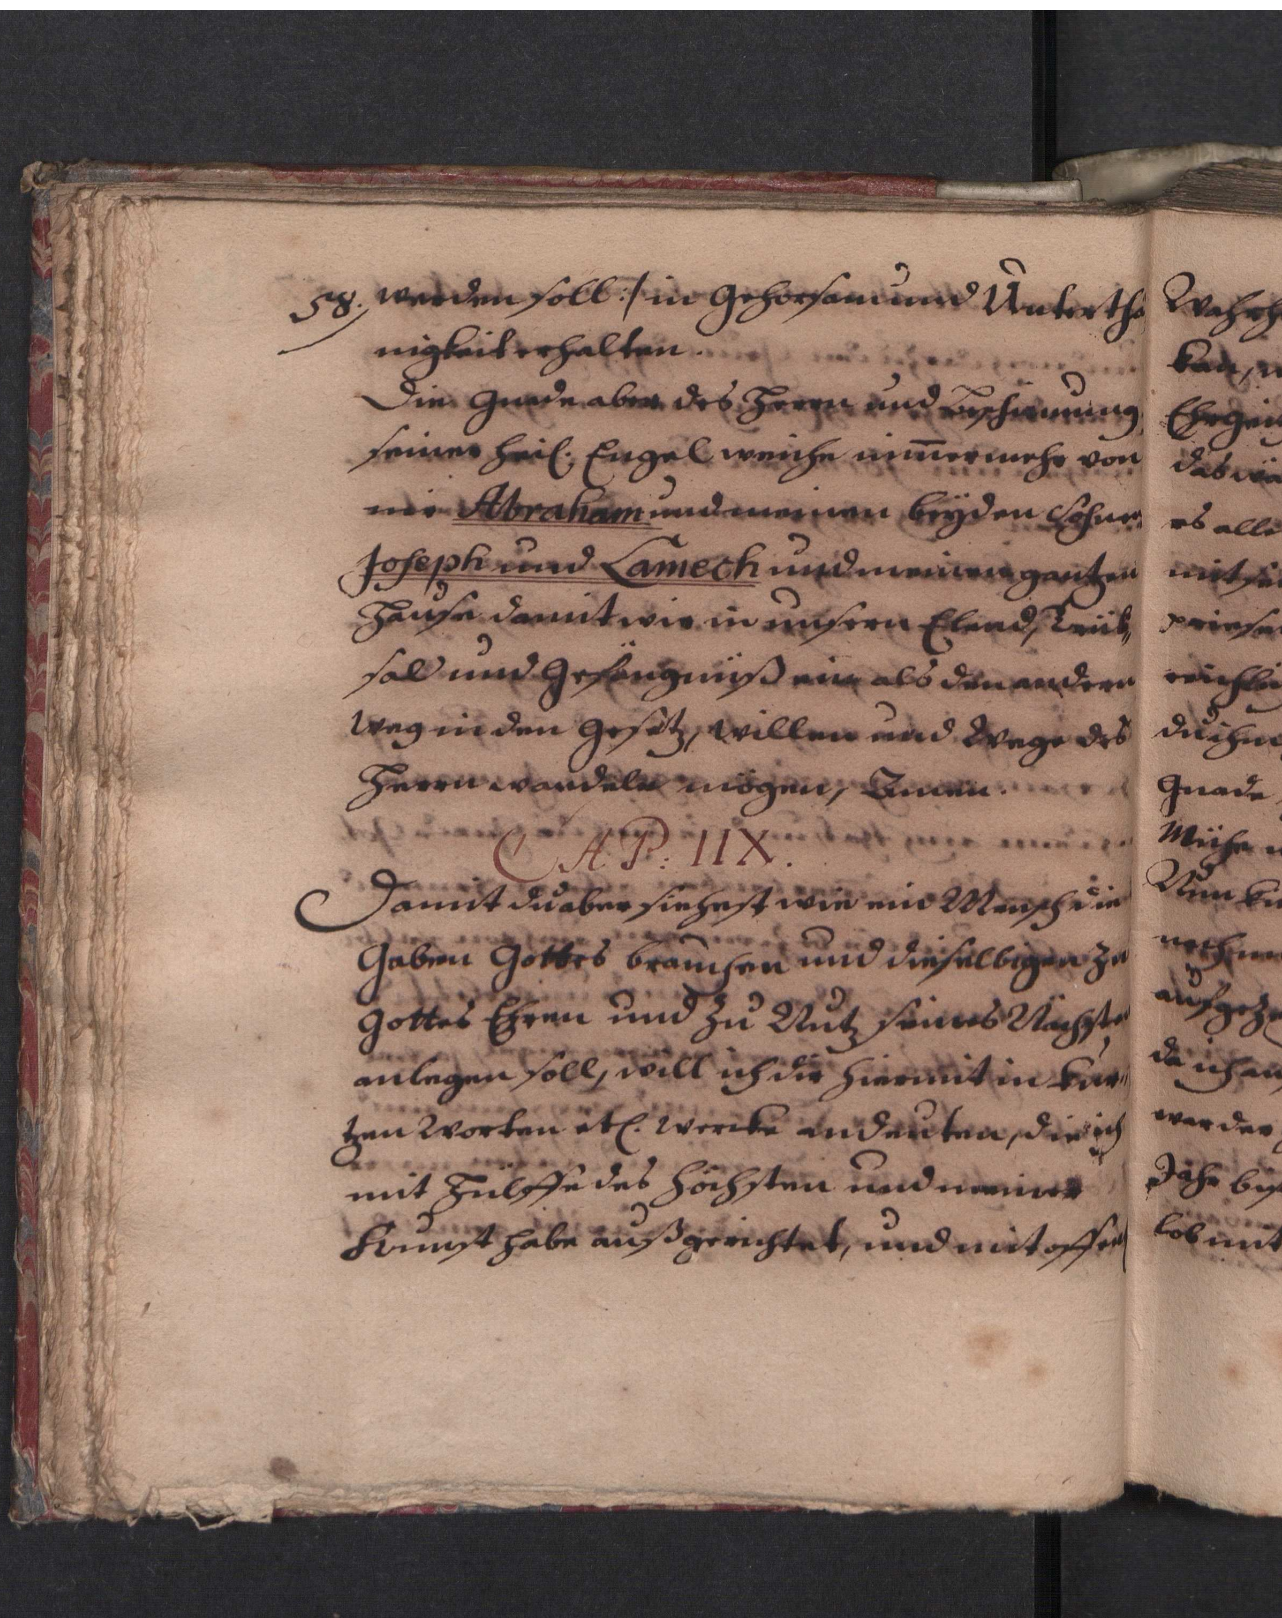 58. werden soll :/ in Gehorsam und Untertha
nigkeit erhalten.
Die Gnade aber des Herrn und Beschirmung
seiner heil. Engel weiche nim̄ermehr von
mir Abraham und meinen beÿden Söhnen
Joseph und Lamech und meinen gantzen
Hause damit wir in unsern Elend, Trüb,
sal und Gefängnüß ein als den andern
Weg in den Gesetz, Willen und Wege des
Herrn wandeln mögen, Amen.
CAP: IIX.
Damit du aber siehest wie ein Mensch die
Gaben Gottes brauchen und dieselbigen zu
Gottes Ehren und zu Nutz seines Nächsten
anlegen soll, will ich dir hiermit in Kur
tzen Worten etl. Wercke andeuten, die ich
mit Hülffe des Höchsten und meiner
Kunst habe außgerichtet, und mit offen
Kan,
das
es alle
Gnade
Mühe
Nun
da ich
werden
Jahr
Lob mit